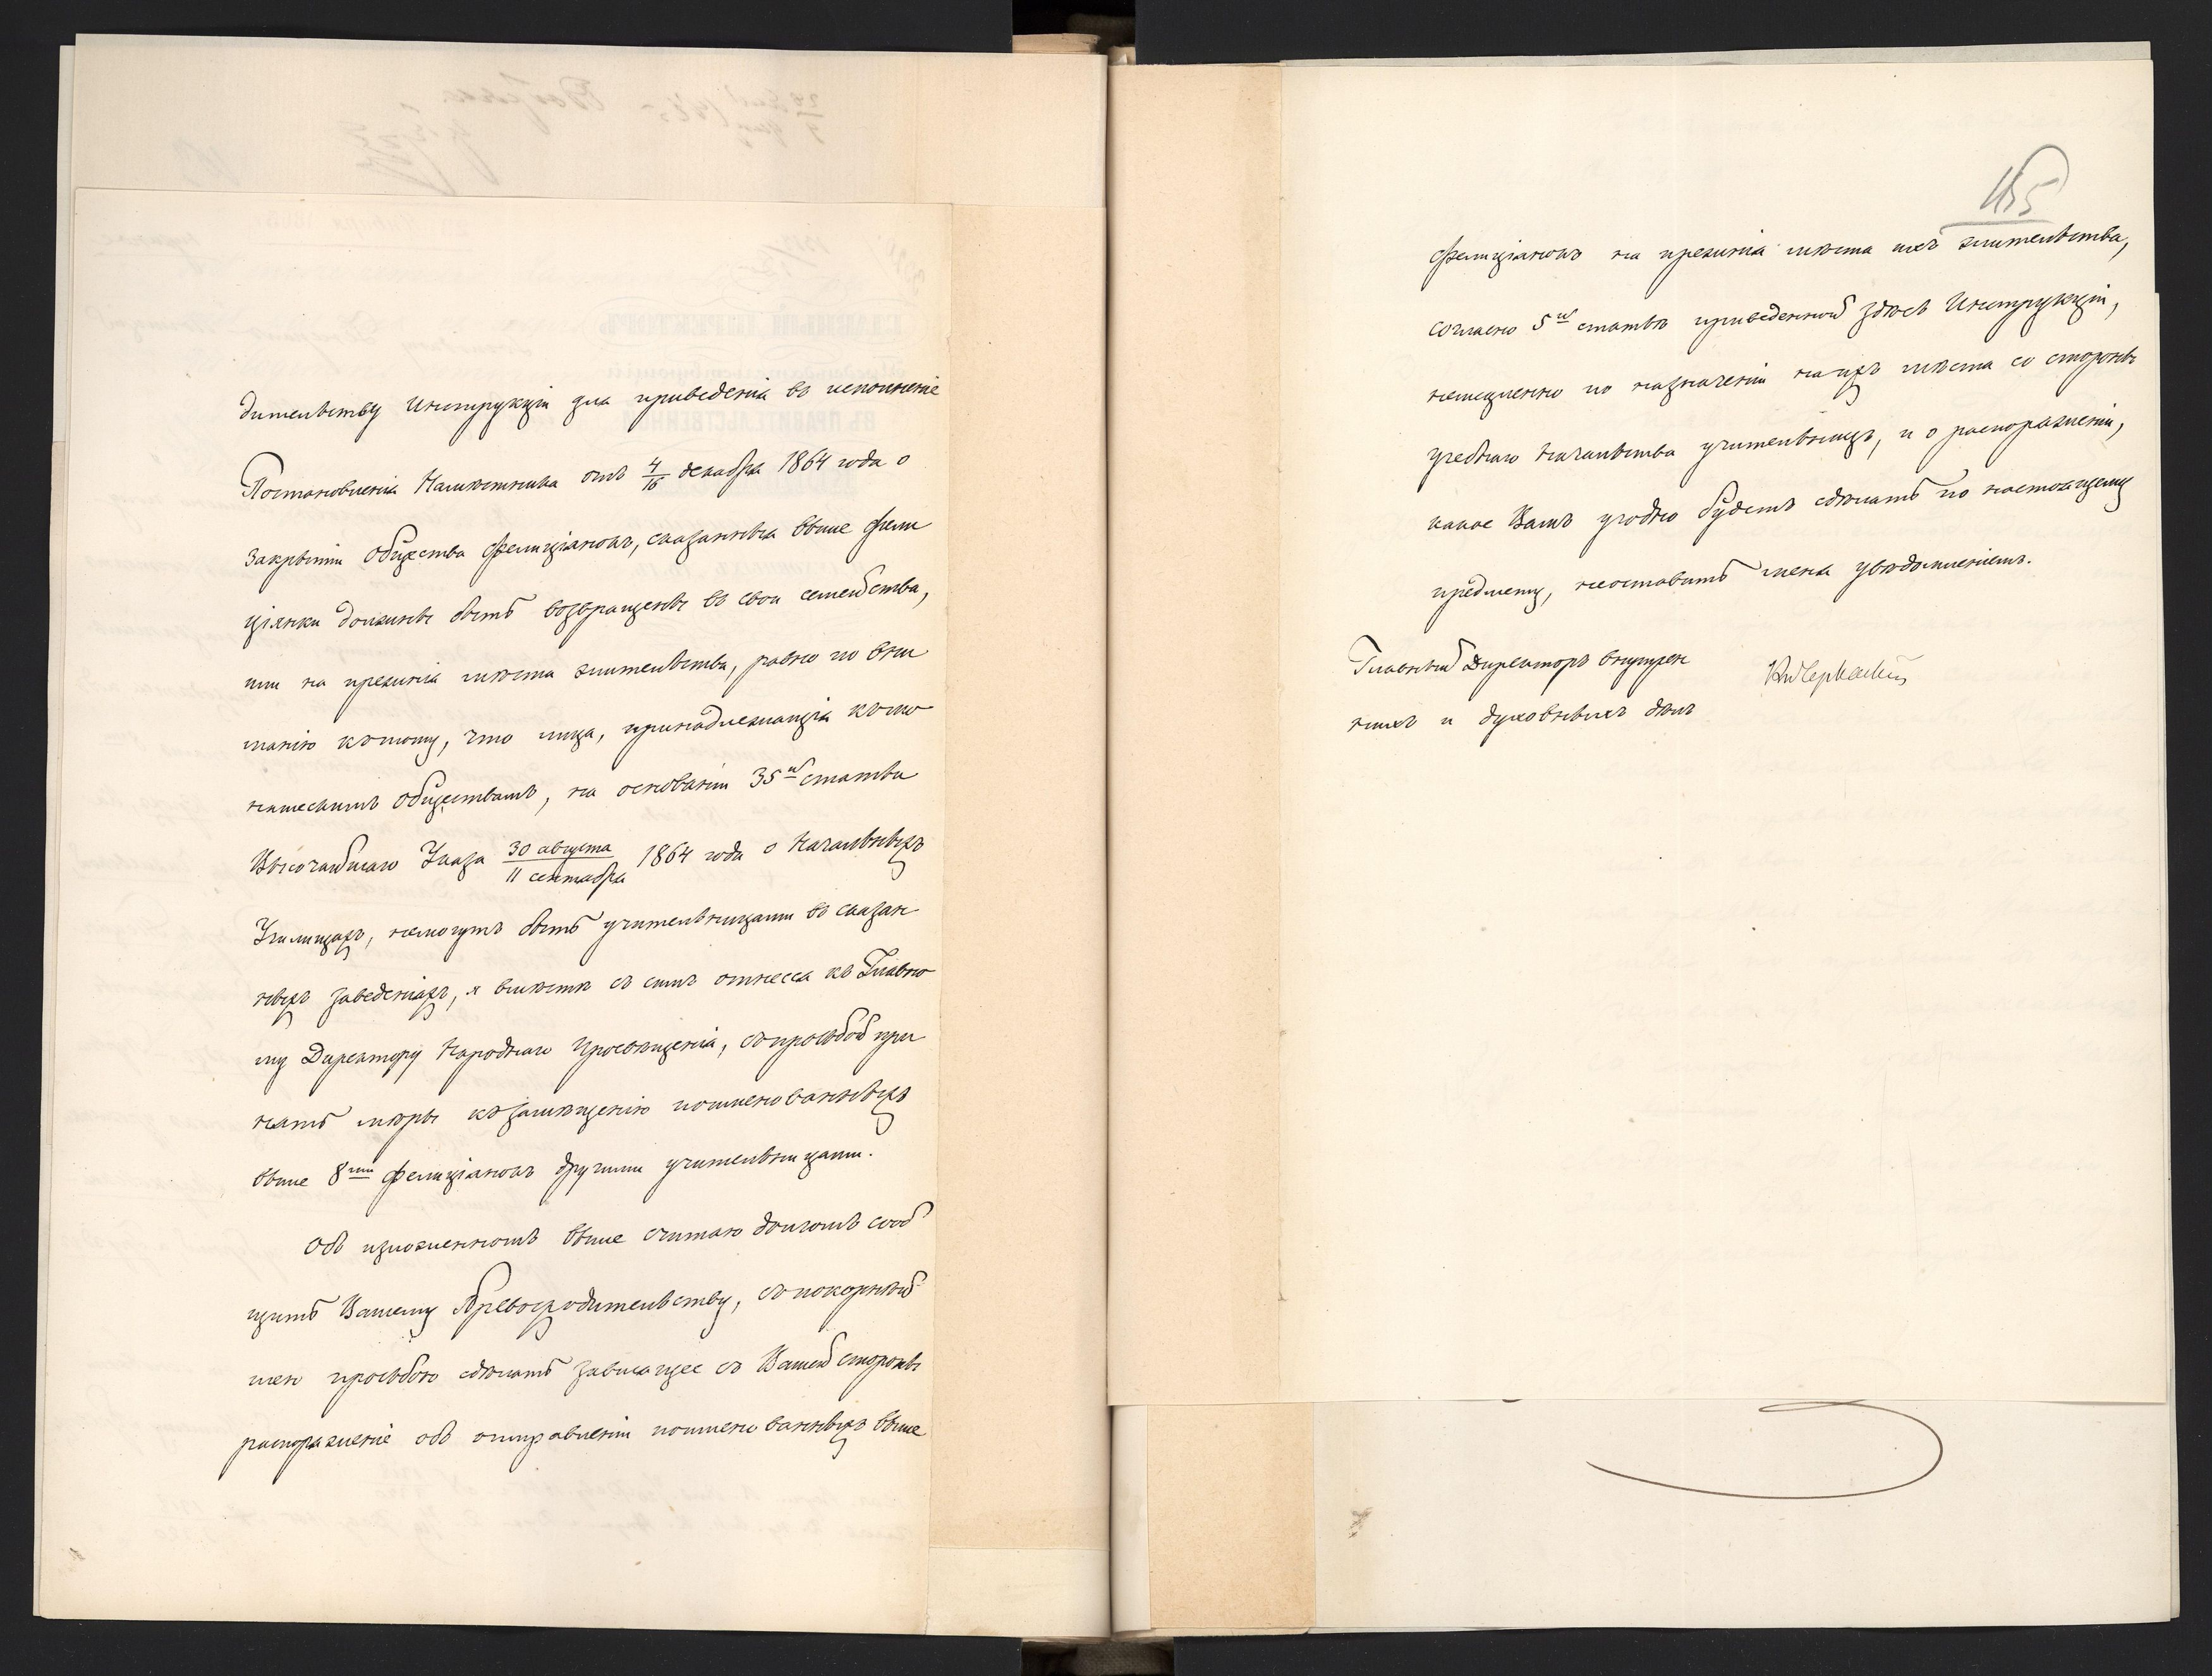 дительству Инструкціи для приведенія въ исполненіе
Постановленія Намѣстника отъ 4/16 декабря 1864 года о
закрытіи Общества Фелиціянокъ, сказанныя выше Фели
ціянки должны быть возвращены въ свои семейства,
или на прежнія мѣста жительства, равно по вни
манію къ тому, что лица, принадлежащія къ мо
нашескимъ обществамъ, на основаніи 35й статьи
Высочайшаго Указа 30 августа/11 сентября 1864 года о Начальныхъ
Училищахъ, немогутъ быть учительницами въ сказан
ныхъ заведеніяхъ, я вмѣстѣ съ симъ отнесся къ Главно
му Директору Народнаго Просвѣщенія, съ просьбой при
нять мѣры къ замѣщенію поименованныхъ
выше 8ми Фелиціянокъ другими учительницами.
Объ изложенномъ выше считаю долгомъ сооб
щить Вашему Превосходительству, съ покорнѣй
шею просьбою сдѣлать зависящее съ Вашей стороны
распоряженіе объ отправленіи поименованныхъ выше
165
Фелиціянокъ на прежнія мѣста ихъ жительства,
согласно 5й статьѣ приведенной здѣсь Инструкціи,
немедленно по назначеніи на ихъ мѣста со стороны
учебнаго начальства учительницъ, и о распоряженіи,
какое Вамъ угодно будетъ сдѣлать по настоящему
предмету, неоставить меня увѣдомленіемъ.
Главный Директоръ внутрен
нихъ и духовныхъ дѣлъ
Кн Черкаскій